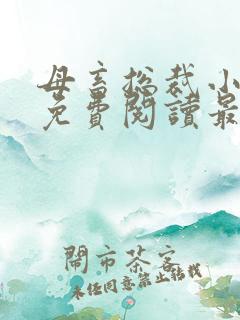 母畜总裁小
免費閱讀最
鬧市茶客
未经同意禁止转载